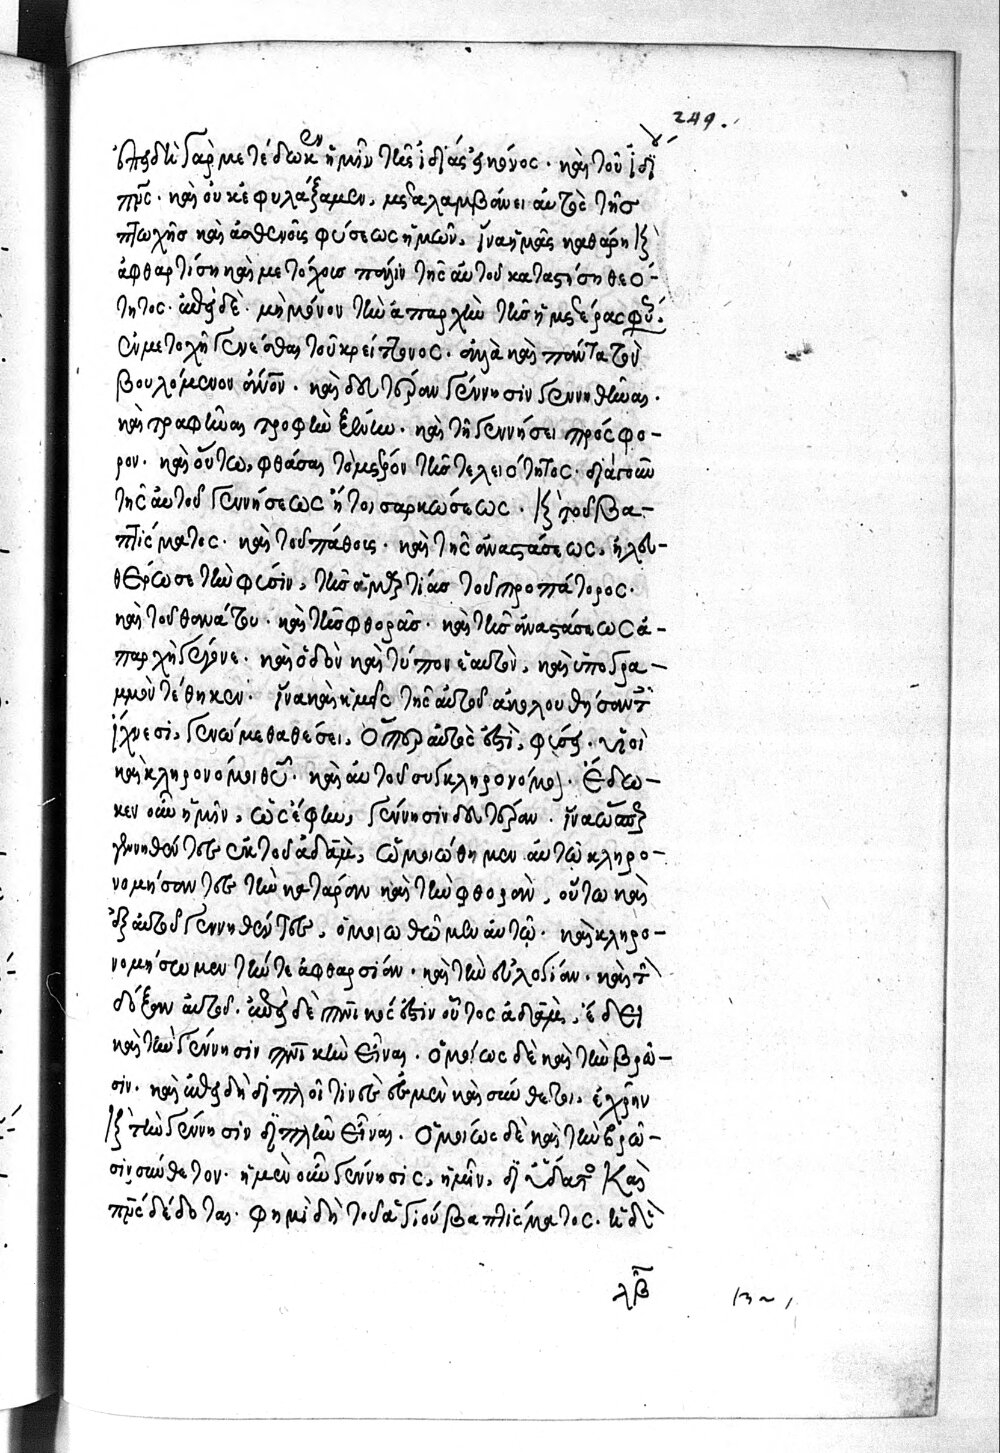 249.
ἐπειδὴ γὰρ μετέδωκεν ἡμῖν τῆς ἰδίας εἰκόνος· καὶ τοῦ ἰδί
πνς· καὶ οὐκ ἐφυλάξαμεν, μεταλαμβάνει αὐτὸς τῆς
πτωχῆς καὶ ἀσθενοῖς φύσεως ἡμῶν, ἵνα ἡμᾶς καθάρῃ καὶ
ἀφθαρτίσῃ καὶ μετόχοις πάλιν τῆς αὐτοῦ καταστήσῃ θεό-
τητος· ἔδει δὲ μὴ μόνον τὴν ἀπαρχὴν τῆς ἡμετέρας φύσ
ἐν μετοχῇ γενέσθαι τοῦ κρείττονος· ἀλλὰ καὶ πάντα τὸν
βουλόμενον ἄνον· καὶ δευτέραν γέννησιν γεννηθῆναι·
καὶ τραφῆναι τροφὴν ξένην· καὶ τῇ γεννήσει πρόσφο-
ρον· καὶ οὕτω φθάσαι τὸ μέτρον τῆς τελειότητος· διὰ γοῦν
τῆς αὐτοῦ γεννήσεως ἤτοι σαρκώσεως· καὶ τοῦ βα-
πτίσματος· καὶ τοῦ πάθους· καὶ τῆς ἀναστάσεως, ἠλευ-
θέρωσε τὴν φύσιν, τῆς ἁμαρτίας τοῦ προπάτορος·
καὶ τοῦ θανάτου· καὶ τῆς φθορᾶς· καὶ τῆς ἀναστάσεως ἀ-
παρχὴ γέγονε· καὶ ὁδὸν καὶ τύπον ἑαυτὸν, καὶ ὑπογρα-
μμὸν τέθηκεν· ἵνα καὶ ἡμεῖς τοῖς αὐτοῦ ἀκολουθήσαντ
ἴχνεσι, γενώμεθα θέσει, ὅπερ αὐτός ἐστι, φύσει· υἱοὶ
καὶ κληρονόμοι θυ· καὶ αὐτοῦ συγκληρονόμοι· Ἔδω-
κεν οὖν ἡμῖν, ὡς ἔφην, γέννησιν δευτέραν· ἵνα ὥσπερ
γεννηθέντες ἐκ τοῦ ἀδὰμ, ὡμοιώθημεν αὐτῷ κληρο-
νομήσαντες τὴν κατάραν καὶ τὴν φθορὰν, οὕτω καὶ
ἐξ αὐτοῦ γεννηθέντες, ὁμοιωθῶμεν αὐτῷ· καὶ κληρο-
νομήσωμεν τήν τε ἀφθαρσίαν· καὶ τὴν εὐλογίαν· καὶ τὴν
δόξαν αὐτοῦ· ἐπεὶ δὲ πνικός ἐστιν οὗτος ὁ ἀδὰμ, ἔδει
καὶ τὴν γέννησιν πνικὴν εἶναι· ὁμοίως δὲ καὶ τὴν βρῶ-
σιν· καὶ ἐπειδὴ διπλοῖ τινές ἐσμεν καὶ σύνθετοι, ἐχρῆν
καὶ τὴν γέννησιν διπλῆν εἶναι· ὁμοίως δὲ καὶ τὴν βρῶ-
σιν σύνθετον· ἡ μὲν οὖν γέννησις, ἡμῖν, δι' ὕδατος καὶ
πνς δέδοται· φημὶ δὴ τοῦ ἁγίου βαπτίσματος· ἡ δὲ
λβ